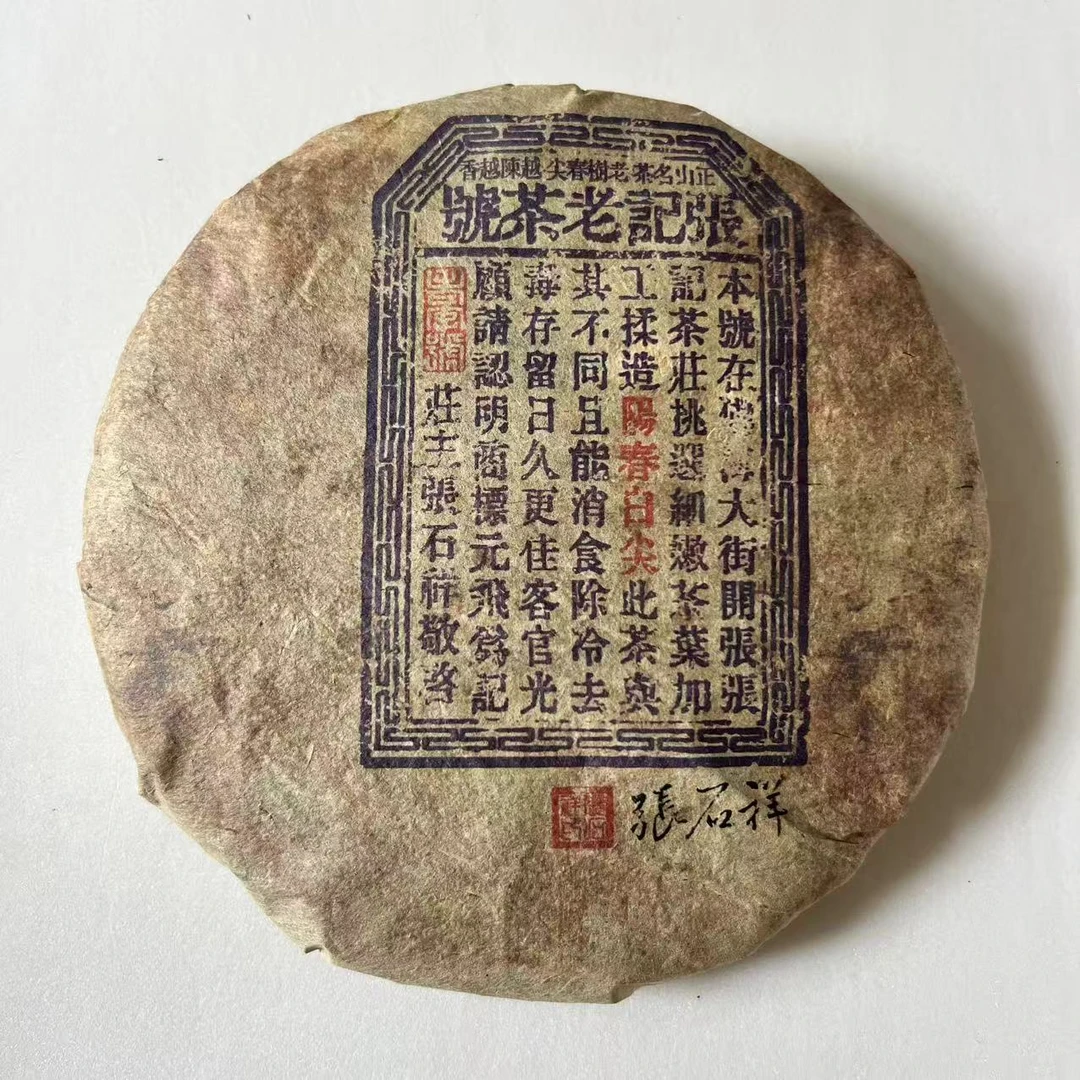 正山名茶 老樹春尖 越陳越香
張記老茶號
本號在大街開張張
記茶莊挑選細嫩茶葉加
工揉造陽春白尖此茶與
其不同且能消食除冷去
毒存留日久更佳客官光
顧請認明商標元飛爲記
莊主張石祥敬
張石祥